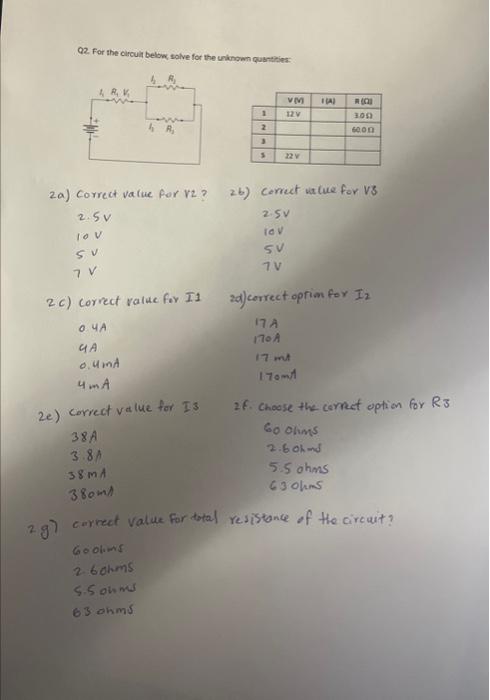 Q2. For the circuit below, solve for the unknown quantities:
I₂ R₂
I₁ R₁ V₁
I₃ R₃
V (V) I (A) R (Ω)
1 12 V 3.0 Ω
2 60.0 Ω
3
S 22 V
2a) Correct value for V2?
2.5V
10 V
5 V
7 V
2b) Correct value for V3
2.5V
10V
5V
7V
2c) Correct value for I1
0.4A
4A
0.4mA
4mA
2d) correct option for I2
17A
170A
17 mA
170mA
2e) Correct value for I3
38A
3.8A
38mA
380mA
2f. Choose the correct option for R3
60 Ohms
2.6 Ohms
5.5 ohms
63 Ohms
2g) correct value for total resistance of the circuit?
60 ohms
2.6 ohms
5.5 ohms
63 ohms